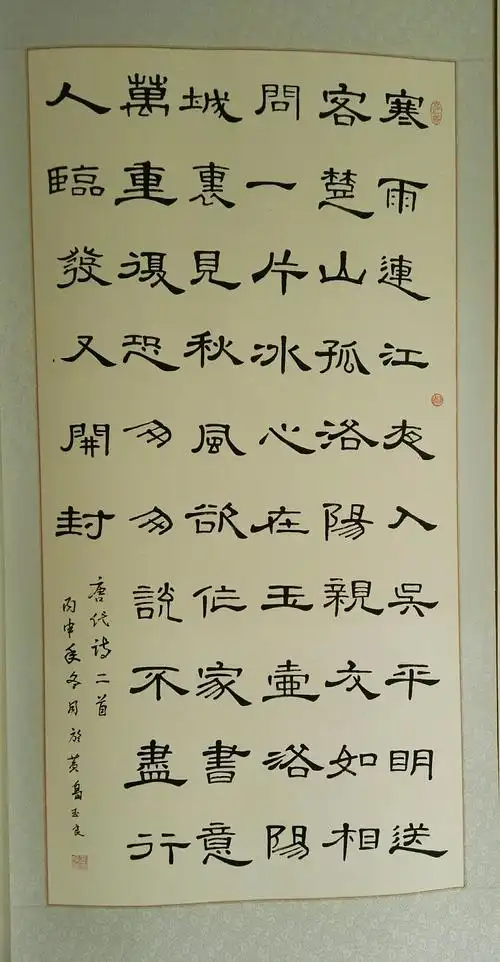 寒雨連江夜入吳平明送
客楚山孤洛陽親友如相
問一片冰心在玉壺洛陽
城裏見秋風欲作家書意
萬重復恐匆匆說不盡行
人臨發又開封
唐代詩二首
丙申年冬月於黃島玉良